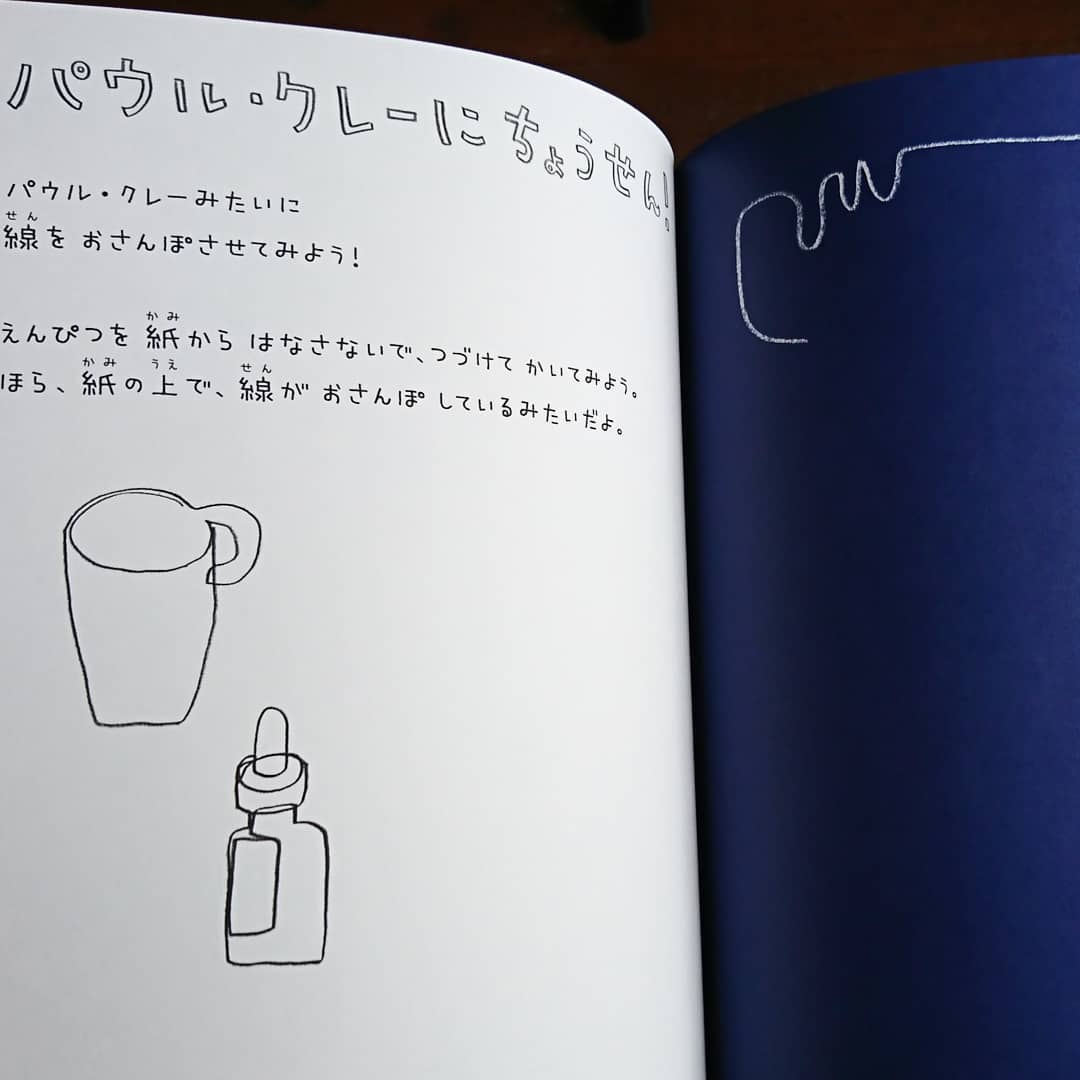 パウル・クレーにちょうせん!
パウル・クレーみたいに
せん
線を おさんぽさせてみよう!
かみ
えんぴつを 紙から はなさないで、つづけて かいてみよう。
かみ うえ せん
ほら、紙の上で、線が おさんぽ しているみたいだよ。